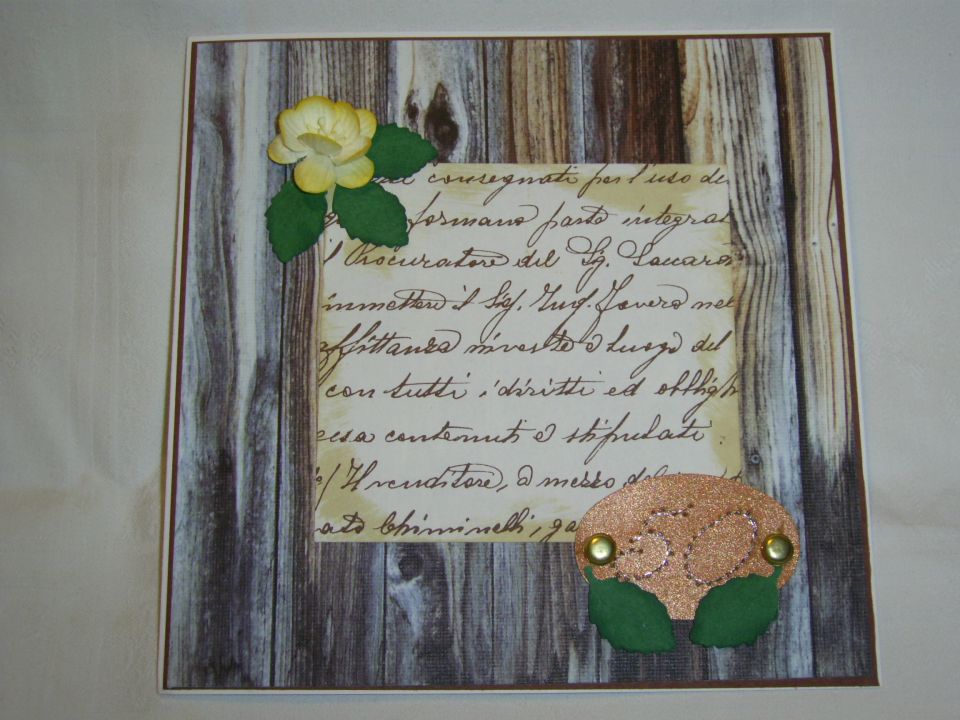 consegnati per l'uso de
formano parte integrat
Procuratore del Sg.
immettere il Sig. Ing. nel
affittanza investe e luogo del
con tutti i diritti ed obbligh
esa contenuti e stipulati
Il venditore, a mezzo de
ato Chiminelli, ga
50